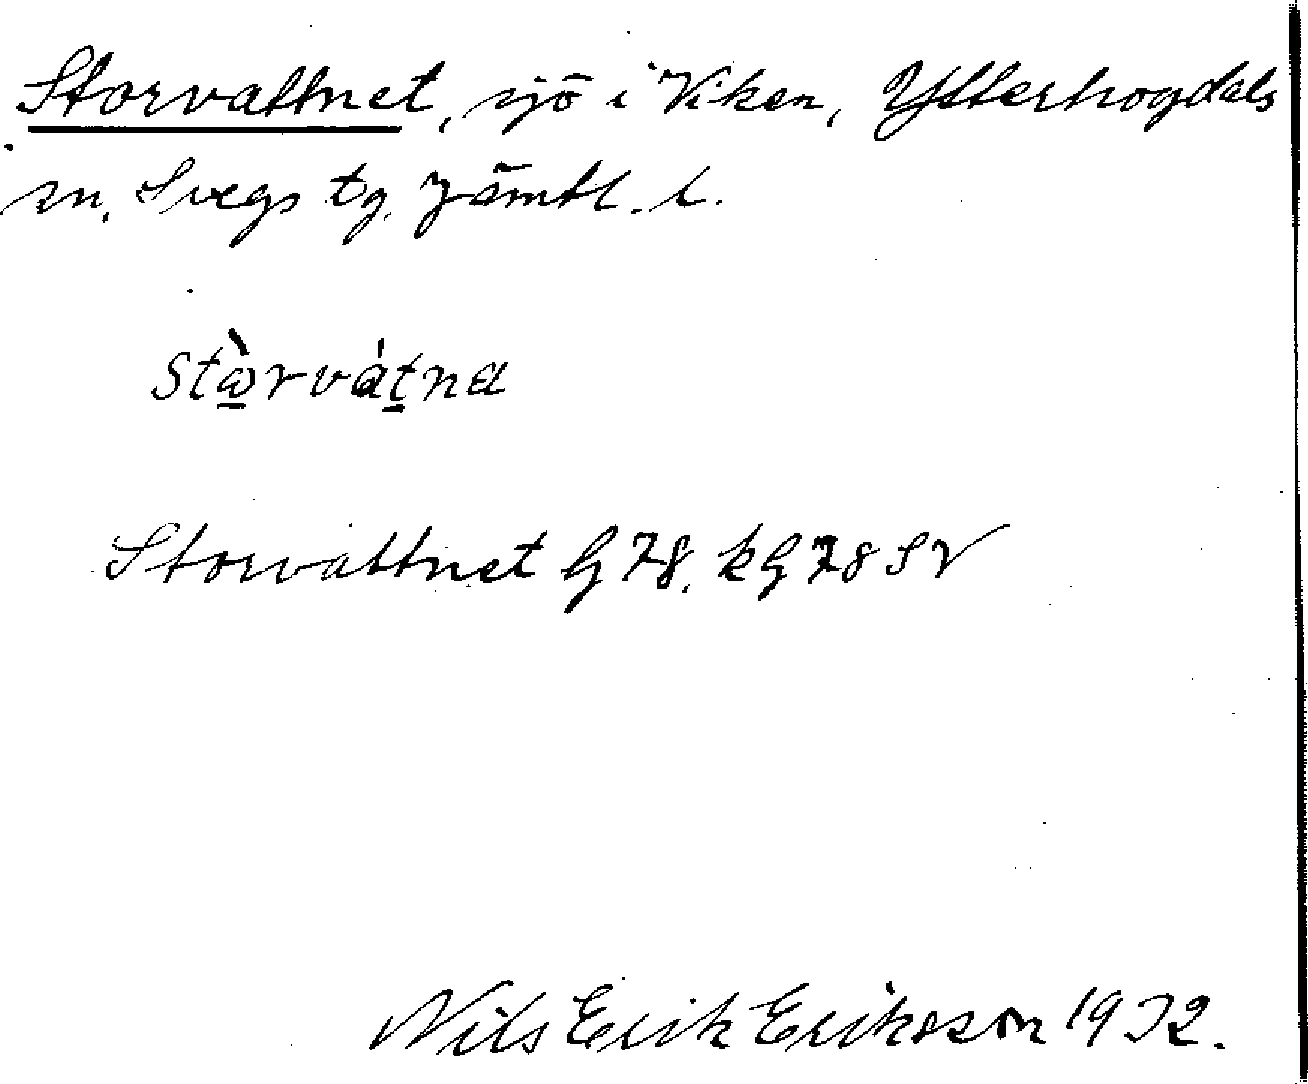 Storvattnet, sjö i Viken, Ytterhogdals
sn. Svegs tg. Jämtl. l.
stὼ̲rvát̲na
Storvattnet G 78. kG 78 SV
Nils Erik Eriksson 1932.